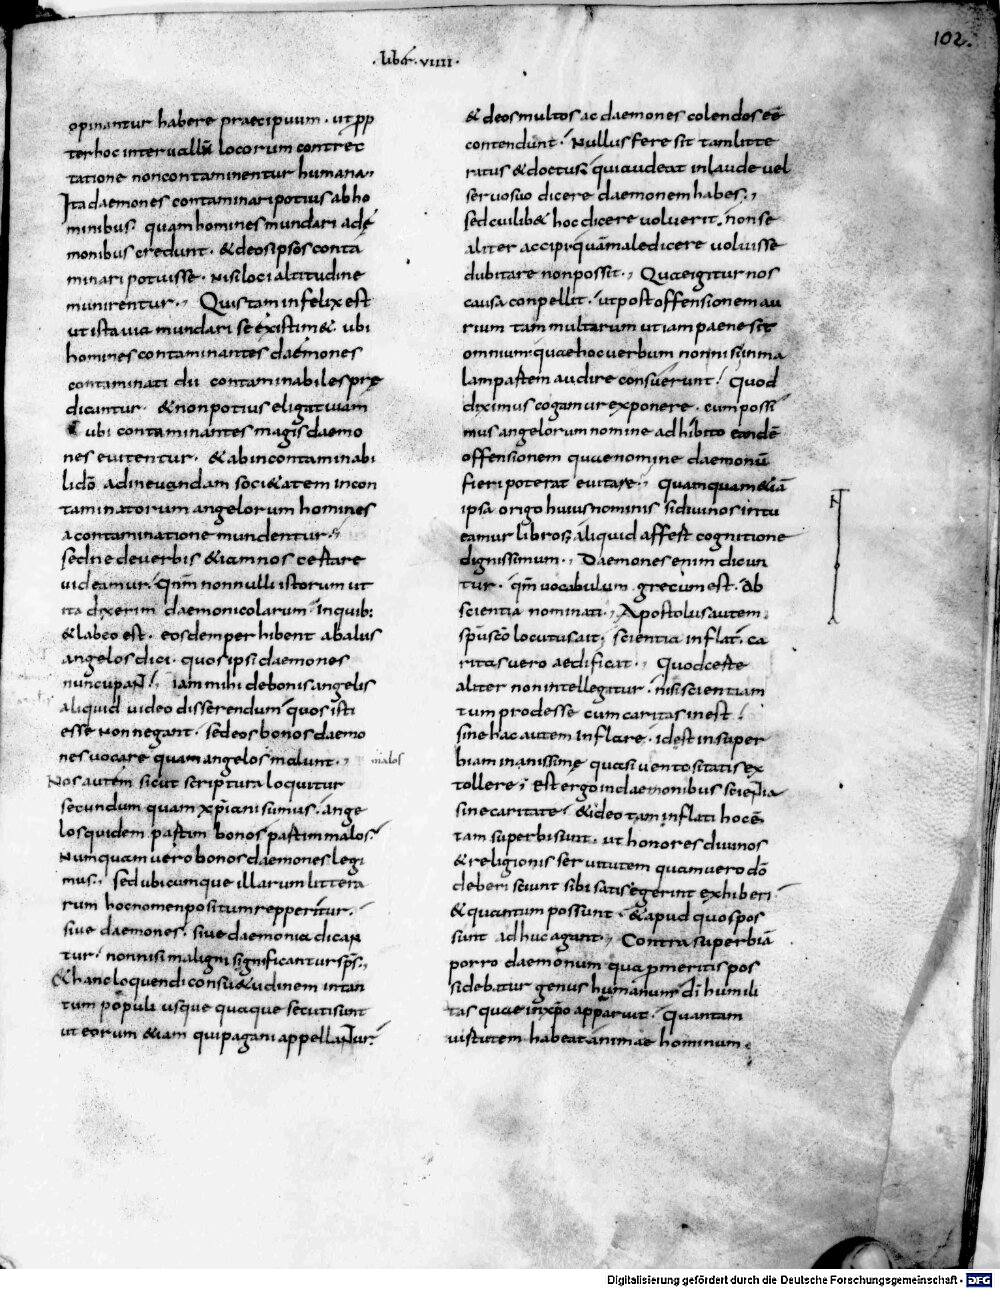 102.
· liber · viiii ·
opinantur habere praecipuum · ut ppt
ter hoc intervallū locorum contrec
tatione non contaminentur humana ·,
Ita daemones contaminari potius ab ho
minibus · quam homines mundari a dę
monibus credunt · & deos ipsos conta
minari potuisse · nisi loci altitudine
munirentur ·, Quis tam infelix est
ut ista via mundari se existim& ubi
homines contaminantes daemones
contaminati dii contaminabiles prę
dicantur · & non potius eligat viam
ubi contaminantes magis daemo
nes evitentur · & ab incontaminabi
li dō ad ineundam soci&atem incon
taminatorum angelorum homines
a contaminatione mundentur ·,
sed ne de verbis &iam nos certare
videamur · qnm nonnulli istorum ut
ita dixerim daemonicolarum · In quib;
& labeo est · eosdem perhibent ab alus
angelos dici · quos ipsi daemones
nuncupant · iam mihi de bonis angelis
aliquid video disserendum quos isti
esse non negant · sed eos bonos daemo
nes vocare quam angelos malunt ·,
malos
Nos autem sicut scriptura loquitur
secundum quam xpiani sumus · ange
los quidem partim bonos partim malos ·
Numquam vero bonos daemones legi
mus ·, sed ubicumque illarum littera
rum hoc nomen positum repperitur ·
sive daemones · sive daemonia dican
tur · non nisi maligni significantur sps ·,
& hanc loquendi consu&udinem in tan
tum populi usque quaque secuti sunt
ut eorum &iam qui pagani appellantur ·
& deos multos ac daemones colendos eē
contendunt · Nullus fere sit tam litte
ratus & doctus · qui audeat in laude vel
servo suo dicere daemonem habes ·,
sed cuilib& hoc dicere voluerit · non se
aliter accipi quam maledicere voluisse
dubitare non possit ·, Quae igitur nos
causa conpellit · ut post offensionem au
rium tam multarum ut iam paene sit
omnium · quae hoc verbum non nisi in ma
lam partem audire consuerunt · quod
diximus cogamur exponere · cum possi
mus angelorum nomine adhibito eandē
offensionem quae nomine daemonū
fieri poterat evitare ·, Quamquam &iā
ipsa origo huius nominis si divinos intu
eamur libros aliquid affert cognitione
dignissimum ·, Daemones enim dicun
tur · qm vocabulum grecum est · Ab
scientia nominati ·, Apostolus autem
spu sco locutus ait · scientia inflat · ca
ritas vero aedificat ·, Quod certe
aliter non intellegitur · nisi scientiam
tum prodesse cum caritas inest ·
sine hac autem inflare · id est in super
biam inanissime quasi ventositatis ex
tollere · Est ergo in daemonibus scientia
sine caritate · & ideo tam inflati hoc ē
tam superbi sunt · ut honores divinos
& religionis servitutem quam vero dō
deberi sciunt sibi satis egerint exhiberi ·
& quantum possunt · & apud quos pos
sunt adhuc agant ·, Contra superbiā
porro daemonum qua p meritis pos
sidebatur genus humanum di humili
tas quae in xpo apparuit · quantam
virtutem habeat animae hominum ·
Digitalisierung gefördert durch die Deutsche Forschungsgemeinschaft - DFG